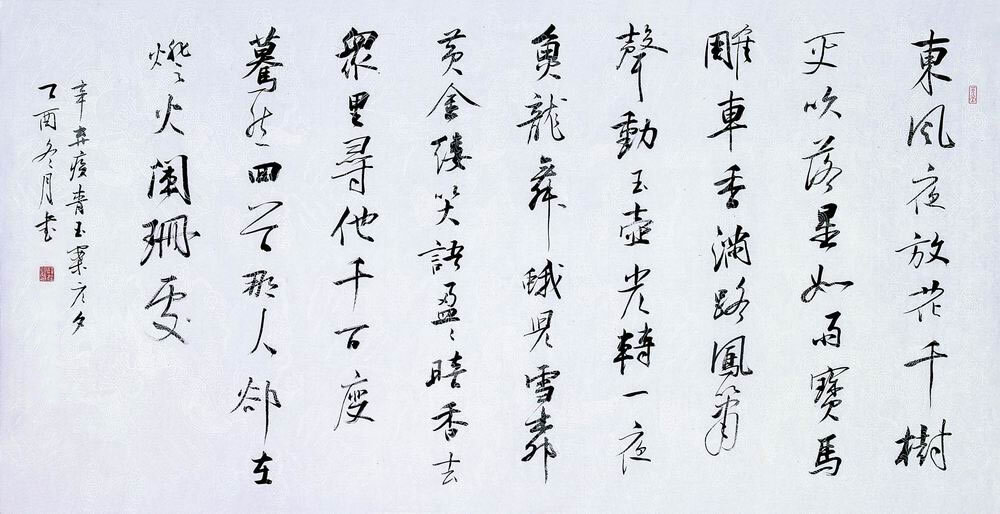 東風夜放花千樹
更吹落星如雨寶馬
雕車香滿路鳳簫
聲動玉壺光轉一夜
魚龍舞蛾兒雪柳
黃金縷笑語盈〻暗香去
衆里尋他千百度
驀然回首那人卻在
燈火闌珊處
辛弃疾青玉案元夕
丁酉冬月書